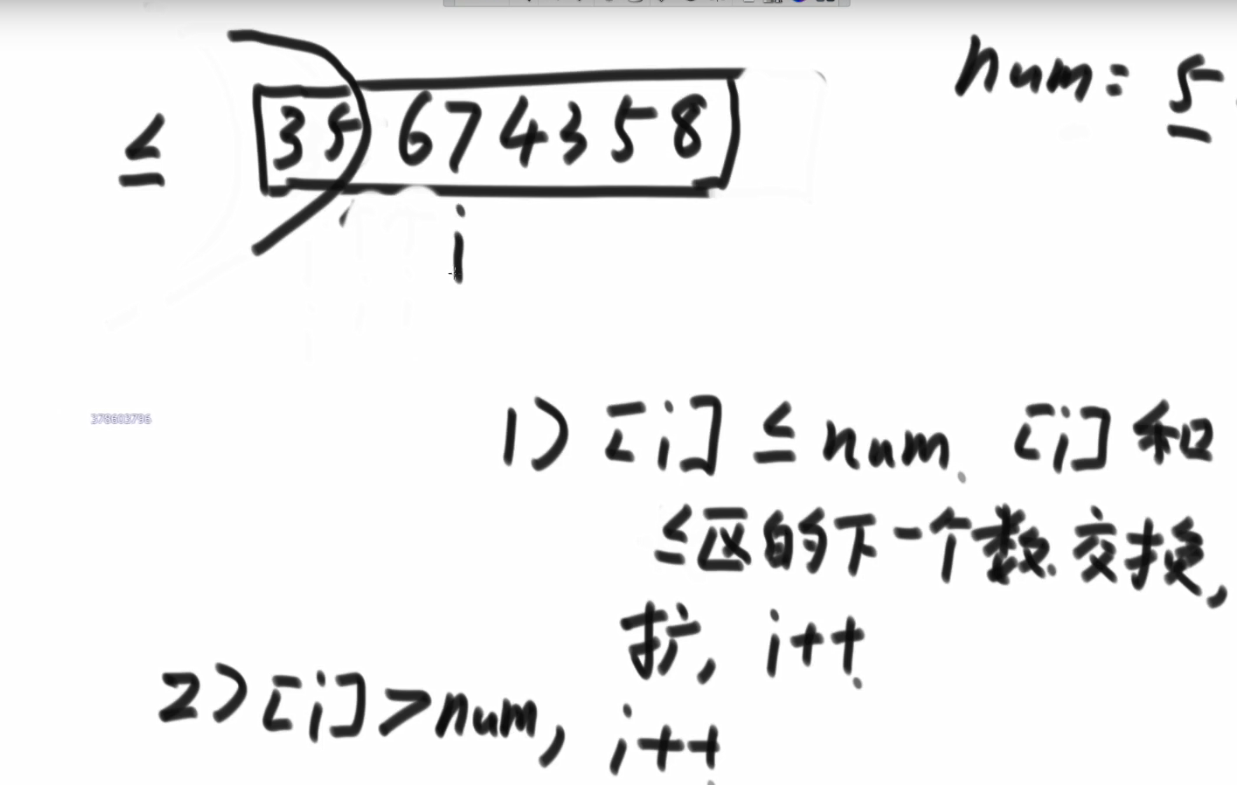 num = 5
≤ 3 5 6 7 4 3 5 8
i
378603796
1) [i] ≤ num、[i] 和
≤区的下一个数交换,
扩, i++
2) [i] > num, i++